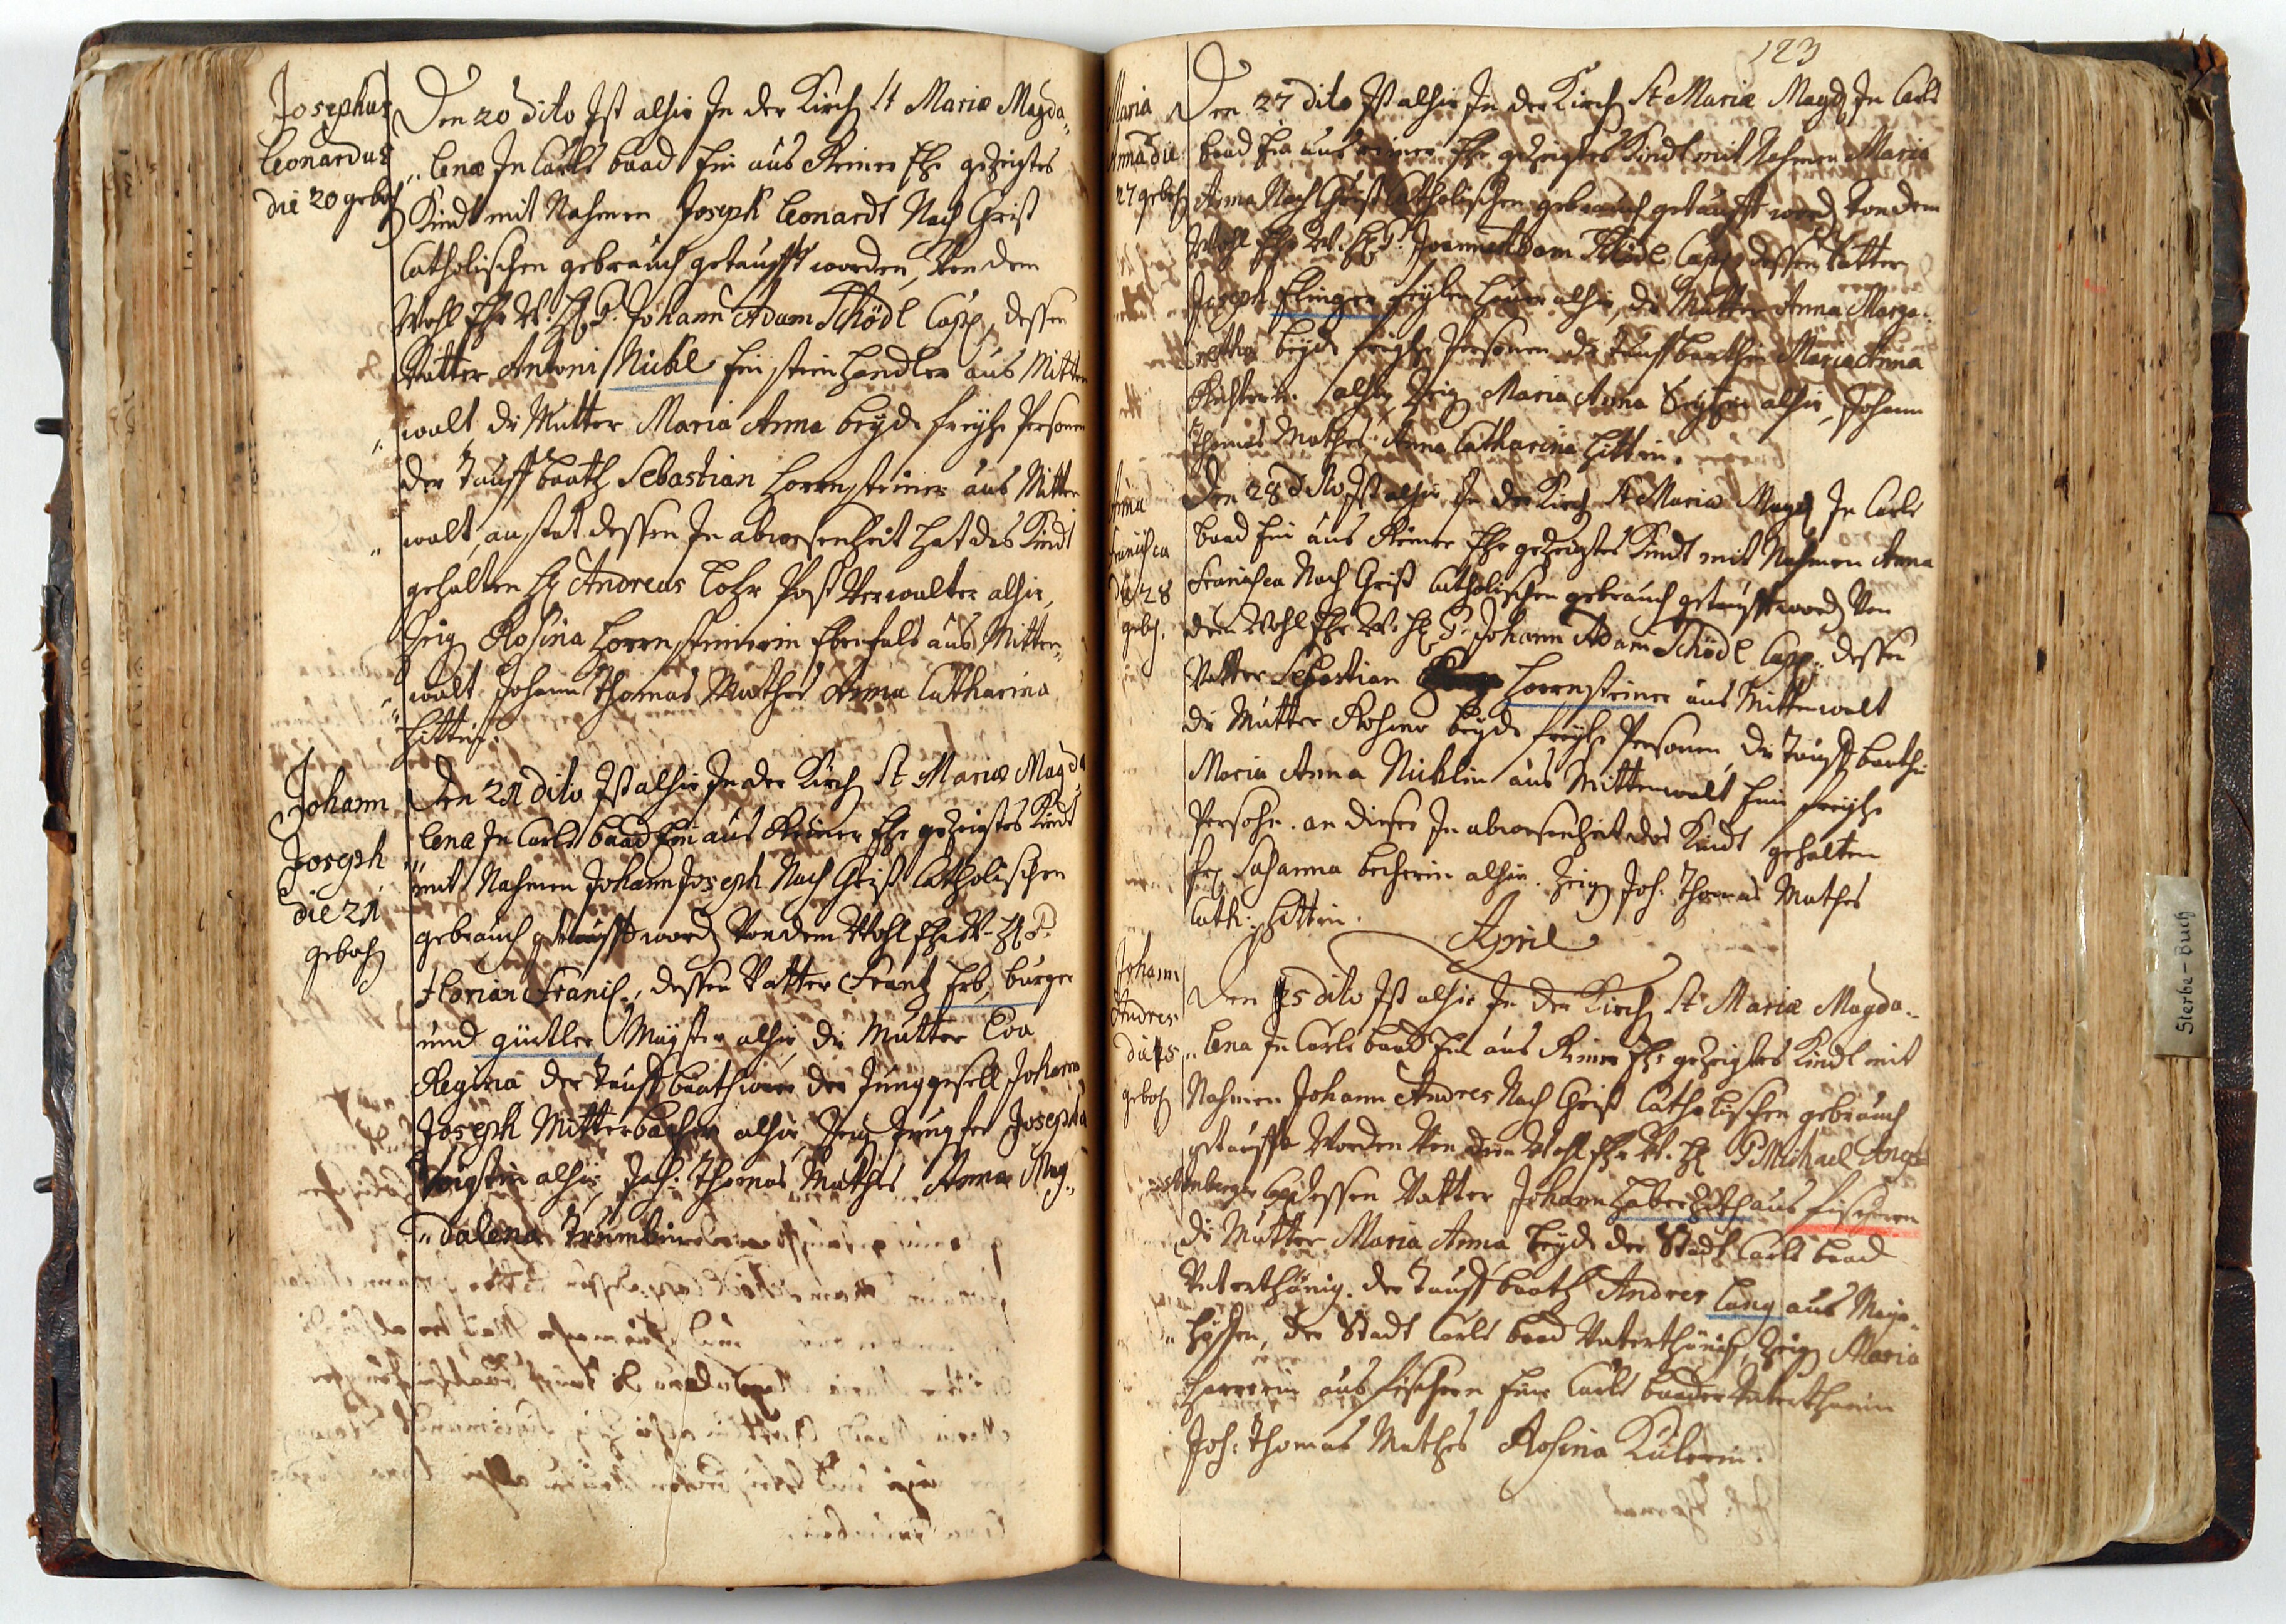 Josephus
Leonardus
die 20 geboh
Den 20 dito Ist alhir In der Kirch St Mariæ Magda„
„lenæ In Carls baad Ein aus Reiner Ehe gezeigtes
Kindt mit Nahmen Joseph Leonardt Nach Christ
Catholischen gebrauch getaufft worden, Von dem
Wohl Ehr W. H P. Johann Adam Schödl Capp, dessen
Vatter Antoni Nickl Ein stein Handler aus Mitten
„walt, die Mutter Maria Anna beyde freyhe Personen
der Tauff baath Sebastian Hornsteiner aus Mitten
„walt, anstat dessen In abwesenheit hat das Kindt
gehalten H Andreas Lohr Post Verwalter alhir,
Zeug Rosina Hornsteinerin Ebenfals aus Mitten„
„walt Johann Thomas Mathes Anna Catharina
Hittin.
Johann
Joseph
die 21
geboh
Den 21 dito Ist alhir In der Kirch St Mariæ Magda„
„lenæ In Carls baad Ein aus Reiner Ehe gezeigtes Kindt
mit Nahmen Johann Joseph Nach Christ Catholischen
gebrauch getaufft word Von dem Wohl Ehr W. H P.
Florian Francis., dessen Vatter Frantz Erb, burger
und gürtler Mayster alhir, die Mutter Eva
Regina der Tauff baath ware der Junggesell Johann
Joseph Mitterbacher alhir, Zeug Jungfer Josepha
Voigtin alhir, Joh: Thomas Mathes Anna Mag„
„dalena
123
Maria
Anna die
27 geboh
Den 27 dito Ist alhir In der Kirch St Mariæ Magd In Carls
baad Ein aus reiner Ehe gezeigtes Kindt mit Nahmen Maria
Anna Nach Christ Catholischen gebrauch getaufft word Von dem
Wohl Ehr W. H P. Joann Adam Schödl Capp dessen Vatter
Joseph Elinger alhir, die Mutter Anna Marga„
retha beyde freyhe Personen die Tauff baathin Maria Anna
Richterin alhir, Zeug Maria Anna alhir, Johann
Thomas Mathes, Anna Catharina Hittin.
Anna
Francisca
die 28
geboh.
Den 28 dito, Ist alhir In der Kirch St Mariæ Magd In Carls
baad Ein aus Reiner Ehe gezeigtes Kindt mit Nahmen Anna
Francisca Nach Christ Catholischen gebrauch getaufft word Von
dem Wohl Ehr W. H P. Johann Adam Schödl Capp: dessen
Vatter Sebastian Hornsteiner aus Mittenwalt
die Mutter Rosina beyde freyhe Personen, die Tauff baathin
Maria Anna Nicklin aus Mittenwalt Ein freyhe
Persohn. an dieser In abwesenheit das Kindt gehalten
Fr Susanna becherin alhir. Zeug Joh. Thomas Mathes
Cath: Hittin.
April
Johann
Andres
die 5
geboh
Den 5 dito Ist alhir In der Kirch St Mariæ Magda„
„lena In Carls baad Ein aus Reiner Ehe gezeigtes Kindt mit
Nahmen Johann Andres Nach Christ Catholischen gebrauch
getaufft Worden Von dem Wohl Ehr W. H P Michael
dessen Vatter Johann Haberzeth aus fischern
die Mutter Maria Anna beyde der Stadt Carls baad
Unterthänig. der Tauff baath Andres Lang aus Meye„
„höffen, der Stadt Carls baad Unterthänig, Zeug Maria
aus fischern Eine Carls baader Unterthanin
Joh: Thomas Mathes Rosina
Sterbe-Buch